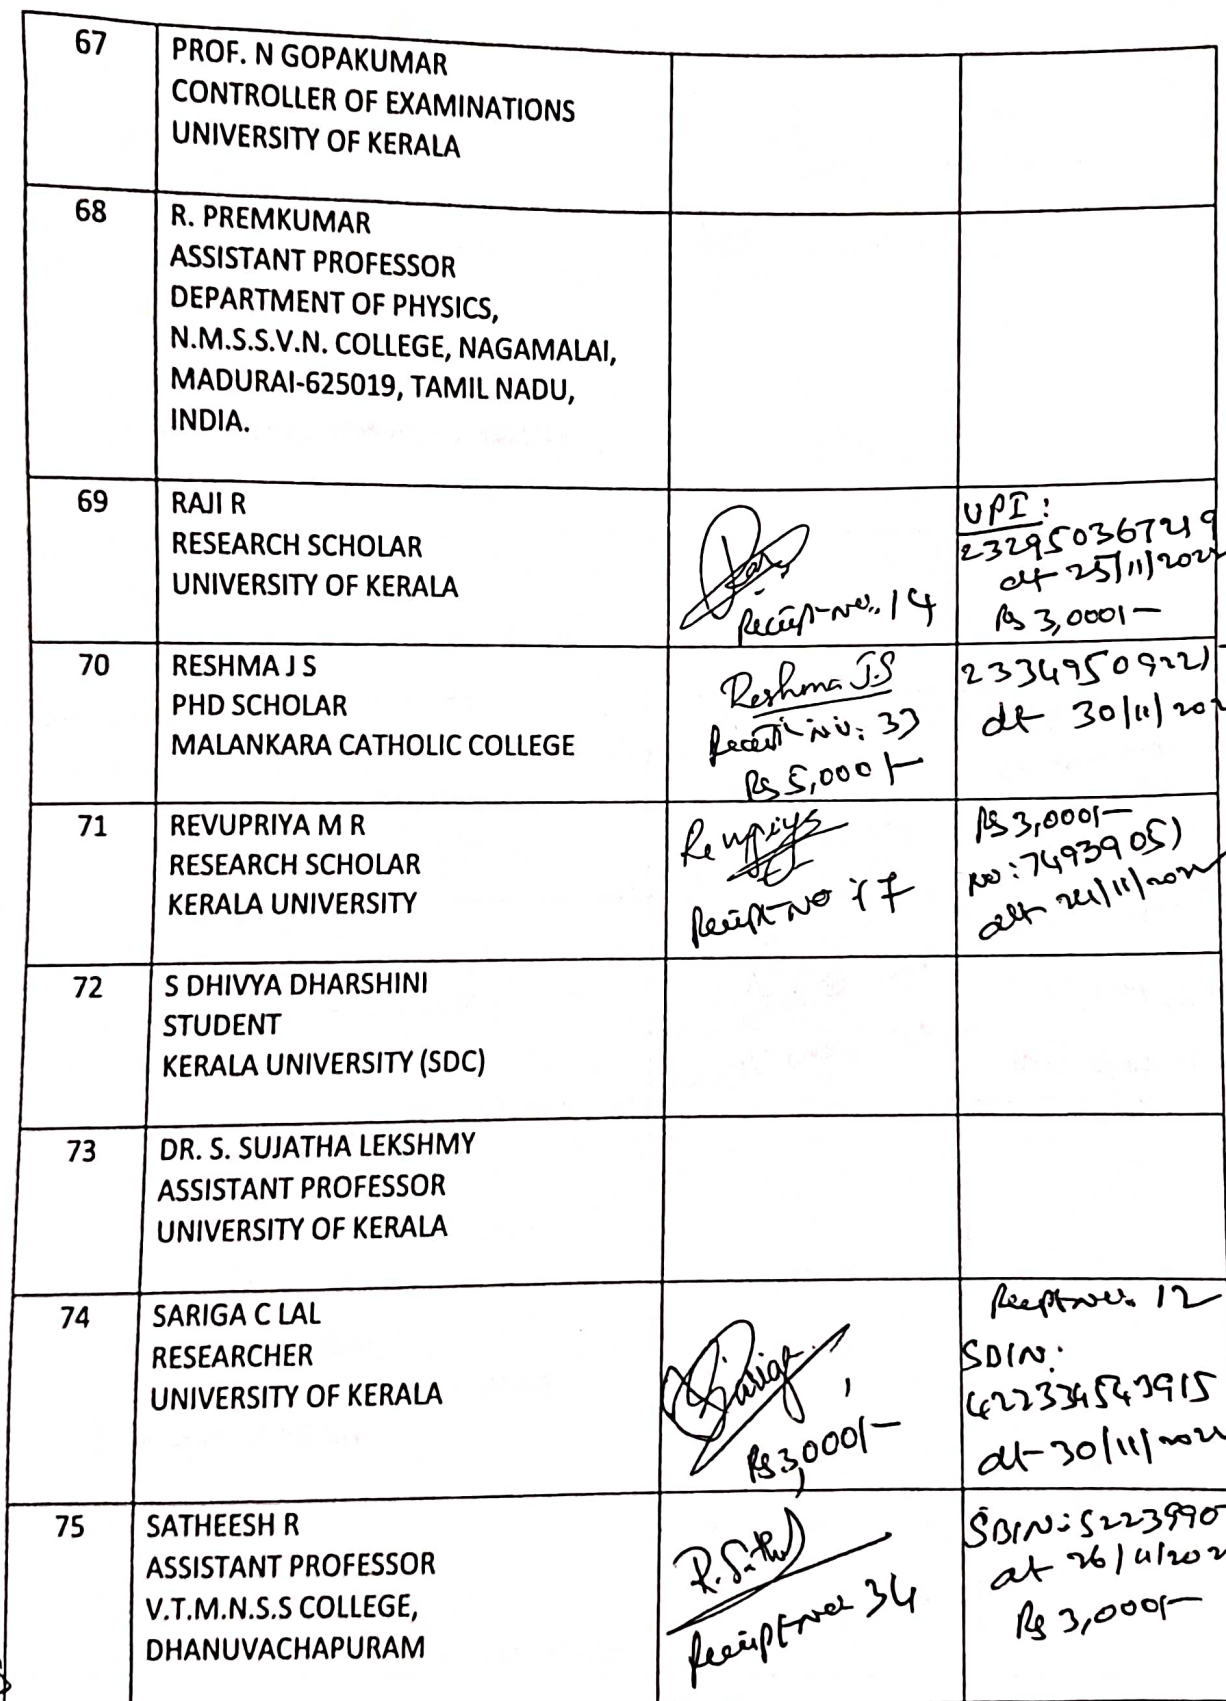 67
PROF. N GOPAKUMAR
CONTROLLER OF EXAMINATIONS
UNIVERSITY OF KERALA
68
R. PREMKUMAR
ASSISTANT PROFESSOR
DEPARTMENT OF PHYSICS,
N.M.S.S.V.N. COLLEGE, NAGAMALAI,
MADURAI-625019, TAMIL NADU,
INDIA.
69
RAJI R
RESEARCH SCHOLAR
UNIVERSITY OF KERALA
Receipt No. 14
UPI:
232950367219
dt 25/11/202
Rs 3,000/-
70
RESHMA J S
PHD SCHOLAR
MALANKARA CATHOLIC COLLEGE
Reshma J.S
Receipt No: 33
Rs 5,000/-
dt 30/11/202
71
REVUPRIYA M R
RESEARCH SCHOLAR
KERALA UNIVERSITY
Receipt No 17
Rs 3,000/-
No:
72
S DHIVYA DHARSHINI
STUDENT
KERALA UNIVERSITY (SDC)
73
DR. S. SUJATHA LEKSHMY
ASSISTANT PROFESSOR
UNIVERSITY OF KERALA
74
SARIGA C LAL
RESEARCHER
UNIVERSITY OF KERALA
Sariga
Rs 3,000/-
Receipt No. 12
dt 30/11/202
75
SATHEESH R
ASSISTANT PROFESSOR
V.T.M.N.S.S COLLEGE,
DHANUVACHAPURAM
Receipt No 34
SBIN: 5223990
26/11/202
Rs 3,000/-